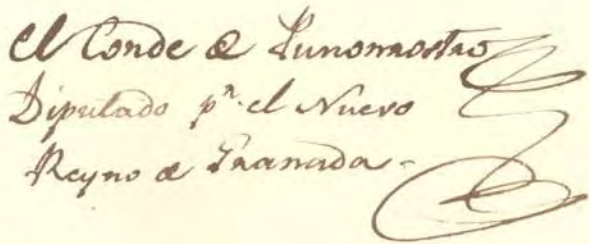 El Conde de Puñonrostro
Diputado pr. el Nuevo
Reyno de Granada.